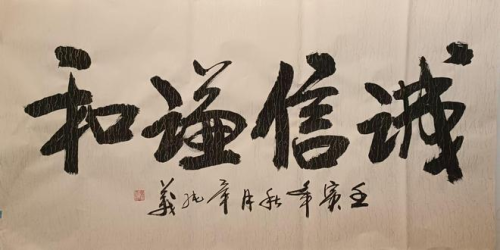 诚信谦和
壬寅年秋月 義